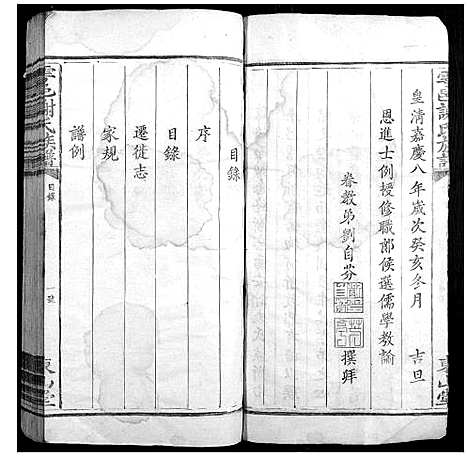 皇清嘉慶八年歲次癸亥冬月 吉旦
恩進士例授修職郎候選儒學教諭
眷教弟劉自芬 撰拜
目錄
序
目錄
遷徙志
家規
譜例
雩邑謝氏族譜
目錄
東山堂